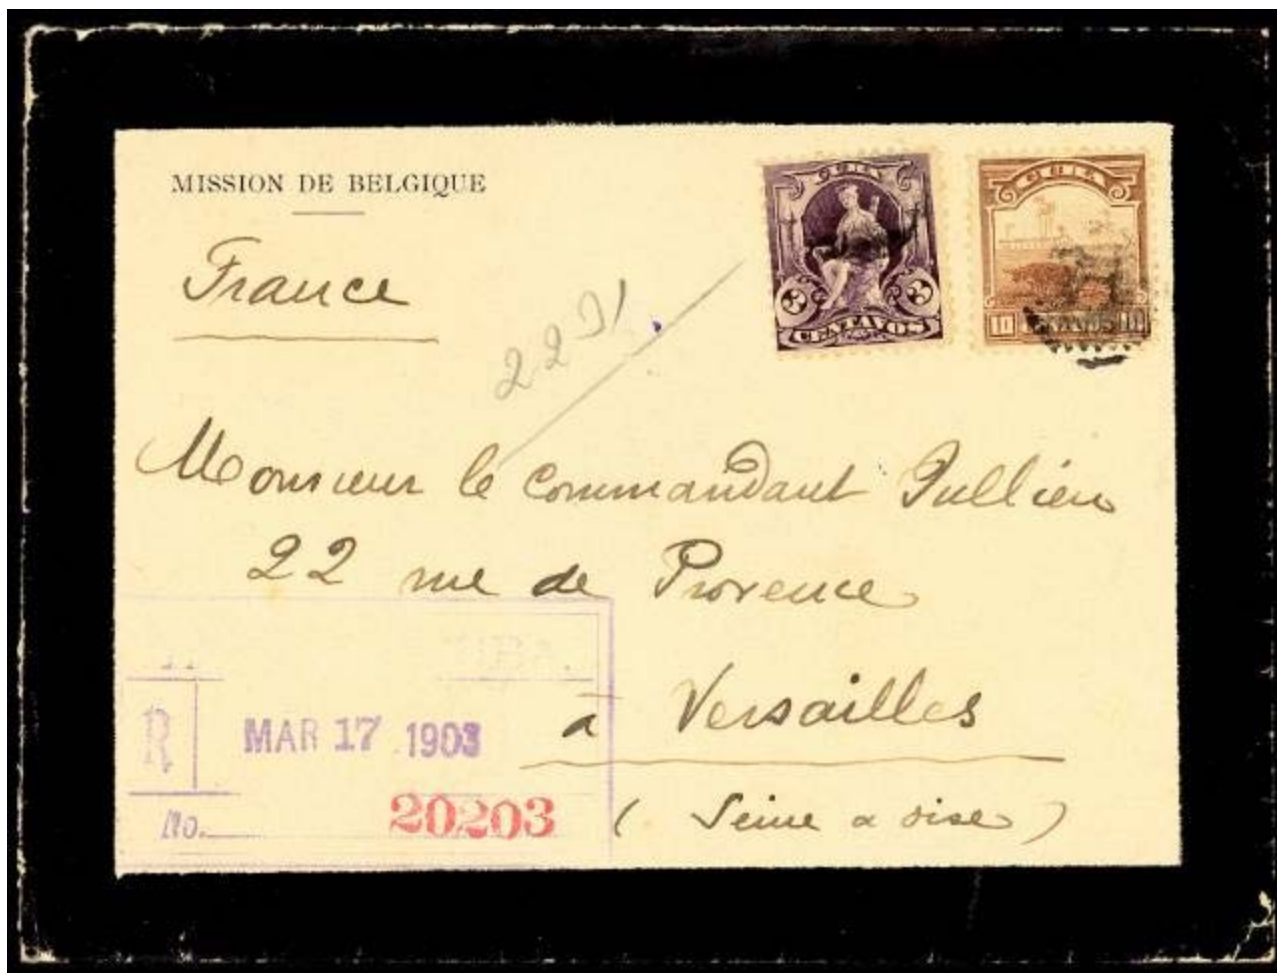 MISSION DE BELGIQUE
France
CUBA
3 3
CENTAVOS
CUBA
10 CENTAVOS 10
Monsieur le commandant Jullien
22 rue de Provence
à Versailles
(Seine & oise)
R
MAR 17 1903
No. 20203